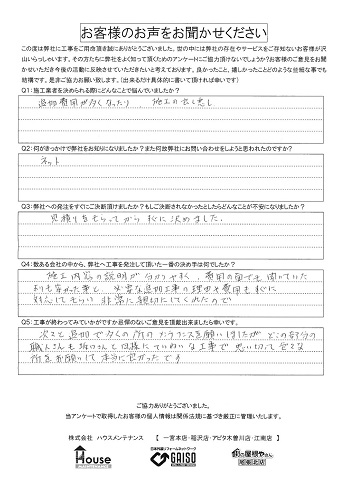 お客様のお声をお聞かせください
この度は弊社に工事をご用命頂き誠にありがとうございました。世の中には弊社の存在やサービスをご存知ないお客様が沢
山いらっしゃいます。その方たちに弊社をよく知って頂くためのアンケートにご協力頂けないでしょうか?お客様のご意見をお聞
かせいただき今後の活動に反映させていただきたいと考えております。良かったこと、嬉しかったことどのような些細な事でも
結構です。是非ご協力お願い致します。(出来るだけ具体的に書いて頂ければ幸いです)
Q1:施工業者を決められる際にどんなことで悩んでいましたか?
追加費用が多くなったり、施工の良し悪し
Q2:何がきっかけで弊社をお知りになりましたか?また何故弊社にお問い合わせをしようと思われたのですか?
ネット
Q3:弊社への発注をすぐにご決断頂けましたか?もしご決断されなかったとしたらどんなことが不安になりましたか?
見積りをもらってからすぐに決めました。
Q4:数ある会社の中から、弊社へ工事を発注して頂いた一番の決め手は何でしたか?
施工内容の説明が分かりやすく、費用の面でも聞いていた
よりも安かった事と、必要な追加工事の理由や費用もすぐに
対応してもらい非常に親切にしてくれたので
Q5:工事が終わってみていかがですか忌憚のないご意見を頂戴出来ましたら幸いです。
次々と追加で多くの所のメンテナンスを願いましたが どこの部分の
職人さんも皆さんと同様にていねいな工事で 思い切って全ての
所をお願いして本当に良かったです
ご協力ありがとうございました。
当アンケートで取得したお客様の個人情報は関係法規に基づき厳正に管理いたします。
株式会社 ハウスメンテナンス 【 一宮本店・稲沢店・アピタ木曽川店・江南店 】
House
MAINTENANCE
GAISO
街の屋根やさん